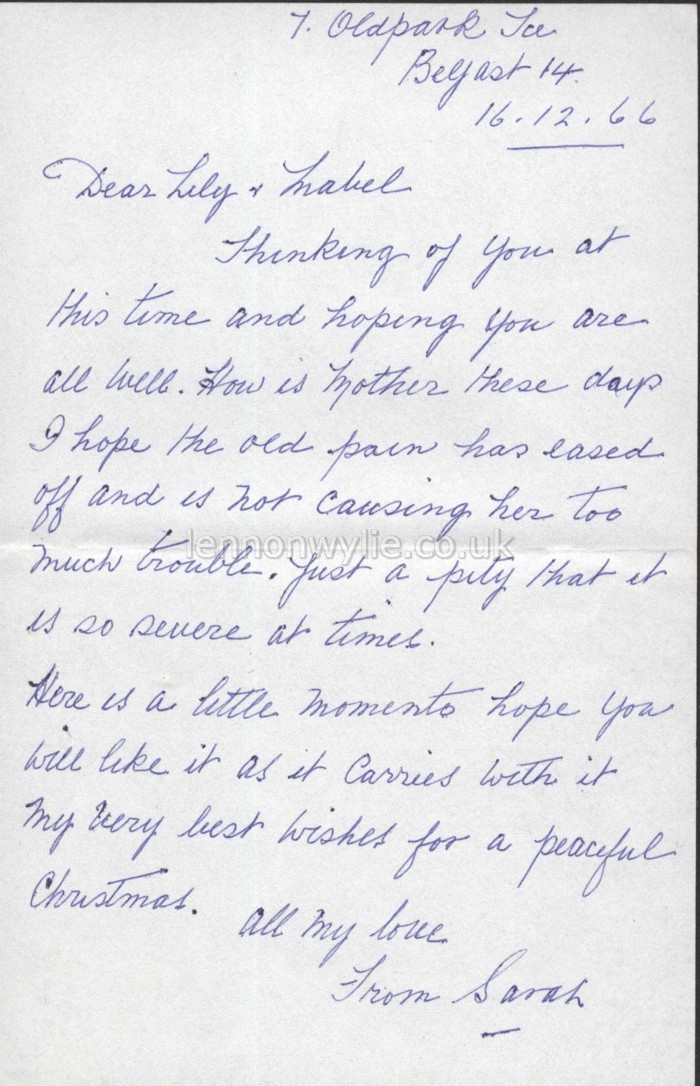 7. Oldpark Tce
Belfast 14.
16.12.66
Dear Lily & Mabel
Thinking of you at
this time and hoping you are
all well. How is Mother these days
I hope the old pain has eased
off and is not causing her too
lennonwylie.co.uk
much trouble. Just a pity that it
is so severe at times.
Here is a little momento hope you
will like it as it carries with it
my very best wishes for a peaceful
Christmas.
all my love
From Sarah